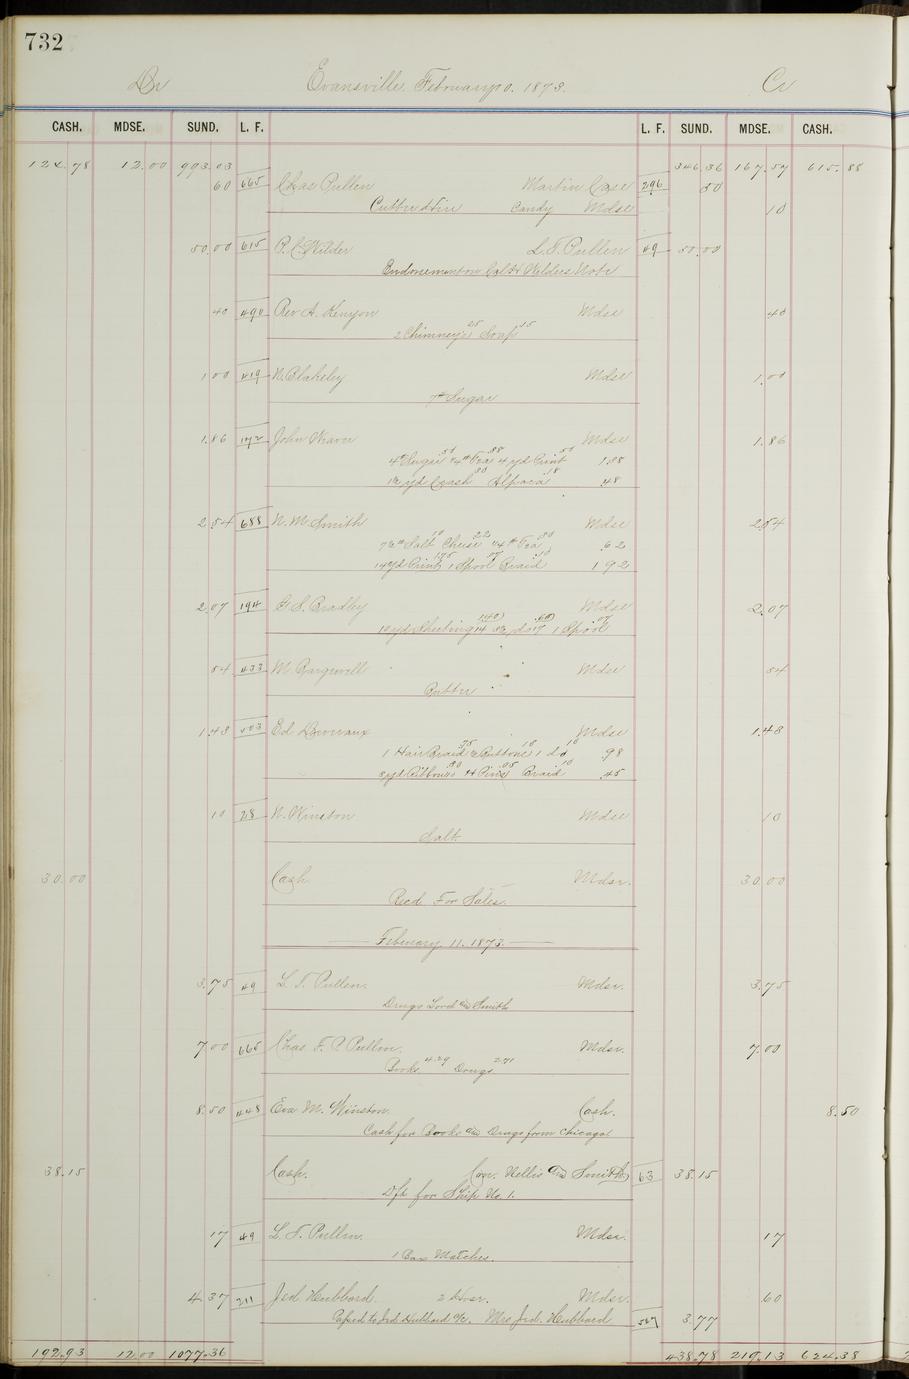 732
Dr Evansville February 10. 1873. Cr
CASH. MDSE. SUND. L. F. L. F. SUND. MDSE. CASH.
124.78 12.00 993.03 346.36 167.57 615.88
60 665 Chas Pullen Martin Case 296 50
Candy Mdse 10
50.00 615 Wilder L. T. Pullen 49 50.00
Wilders Note
40 490 Rev A. Kenyon Mdse 40
2 Chimneys 25 Soap 15
1 00 419 N. Blakeley Mdse 1.00
7# Sugar
1.86 172 John Mdse 1.86
4# Sugar 50 1/4# Tea 38 4 yd Print 50 1.38
yd Crash 30 Alpaca 18 .48
2.54 688 N. M. Smith Mdse 2.54
Salt 10 Cheese 22 1/4# Tea 30 .62
14 yd Print 1.75 1 Spool 07 Braid 10 1 92
2.07 194 Bradley Mdse 2.07
10 yd Sheeting 14 1.40 17 .60 1 Spool 07
54 433 M. Mdse 54
Butter
1.43 Ed Mdse 1.43
1 Hair Braid 75 2 Buttons 10 1 do 10 98
yd Ribbon 30 Pins 05 Braid 10 .45
10 28 N. Winston Mdse 10
Salt.
30.00 Cash Mdsr. 30.00
Recd For Sales.
February 11. 1873
3.75 49 L. T. Pullen. Mdsr. 3.75
Drugs Lord and Smith
7 00 665 Chas. F. P. Pullen. Mdsr. 7.00
Books 4.29 Drugs 2.71
8.50 448 Eva M. Winston. Cash. 8.50
Cash for Books and Drugs from Chicago
38.15 Cash. Nellis and Smith 63 38.15
Dft for Ship No. 1.
17 49 L. T. Pullen. Mdsr. 17
1 Box Matches.
4.37 211 Jed Hubbard. 2 Hose. Mdsr. 60
to Jed Hubbard %. Mrs Jed. Hubbard 507 3.77
192.93 12.00 1077.36 438.78 219.13 624.38